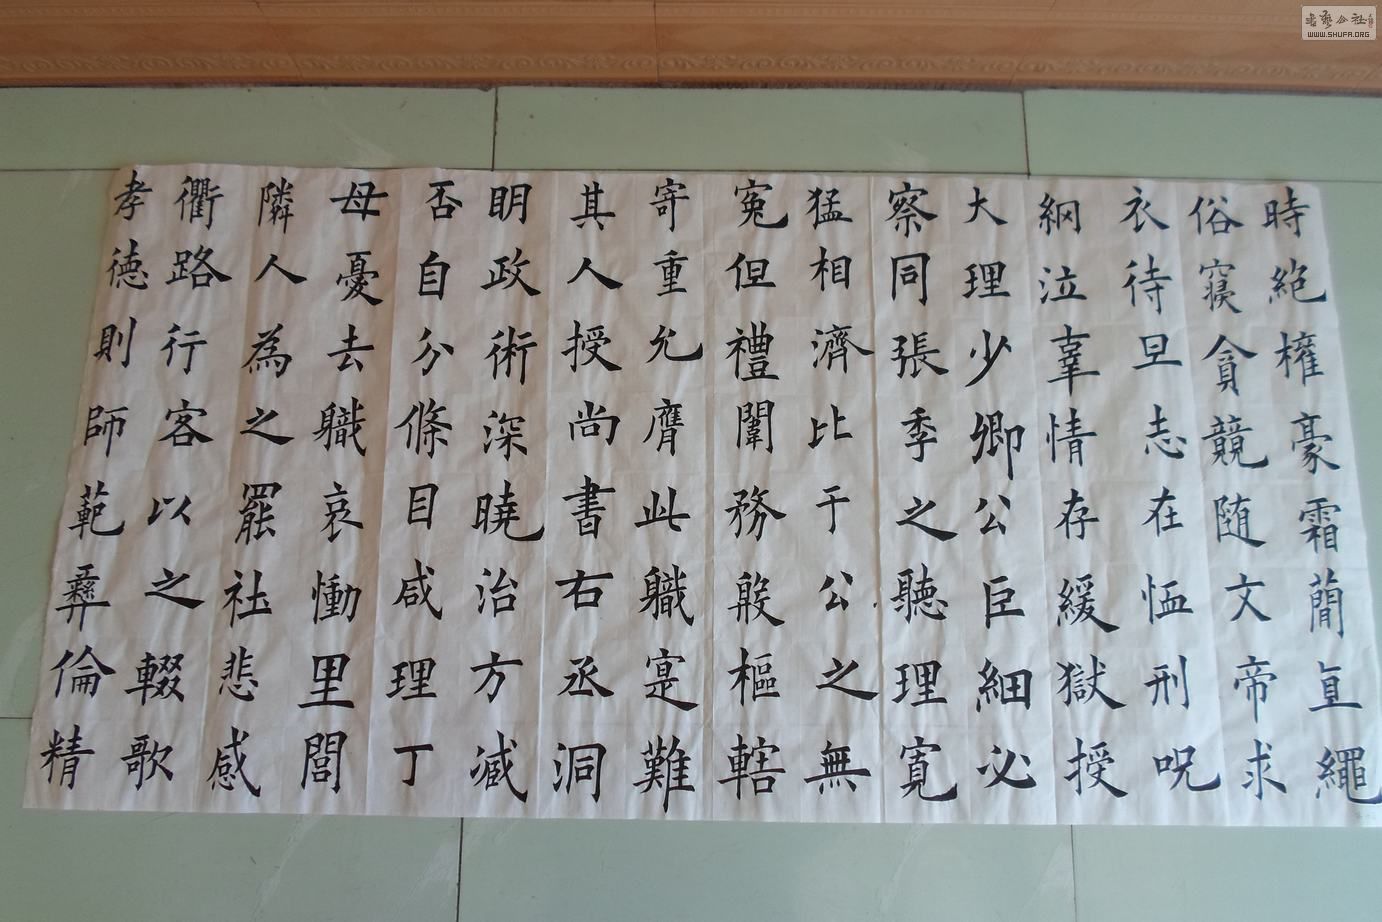 時絶權豪霜蕑直繩
俗寝貪競随文帝求
衣待旦志在恤刑呪
網泣辜情存緩獄授
大理少卿公巨細必
察同張季之聽理寬
猛相濟比于公之無
寃但禮闈務殷樞轄
寄重允膺此職寔難
其人授尚書右丞洞
明政術深曉治方減
否自分條目咸理丁
母憂去職哀慟里閭
隣人為之罷社悲感
衢路行客以之輟歌
孝德則師範彝倫精
书艺公社
WWW.SHUFA.ORG